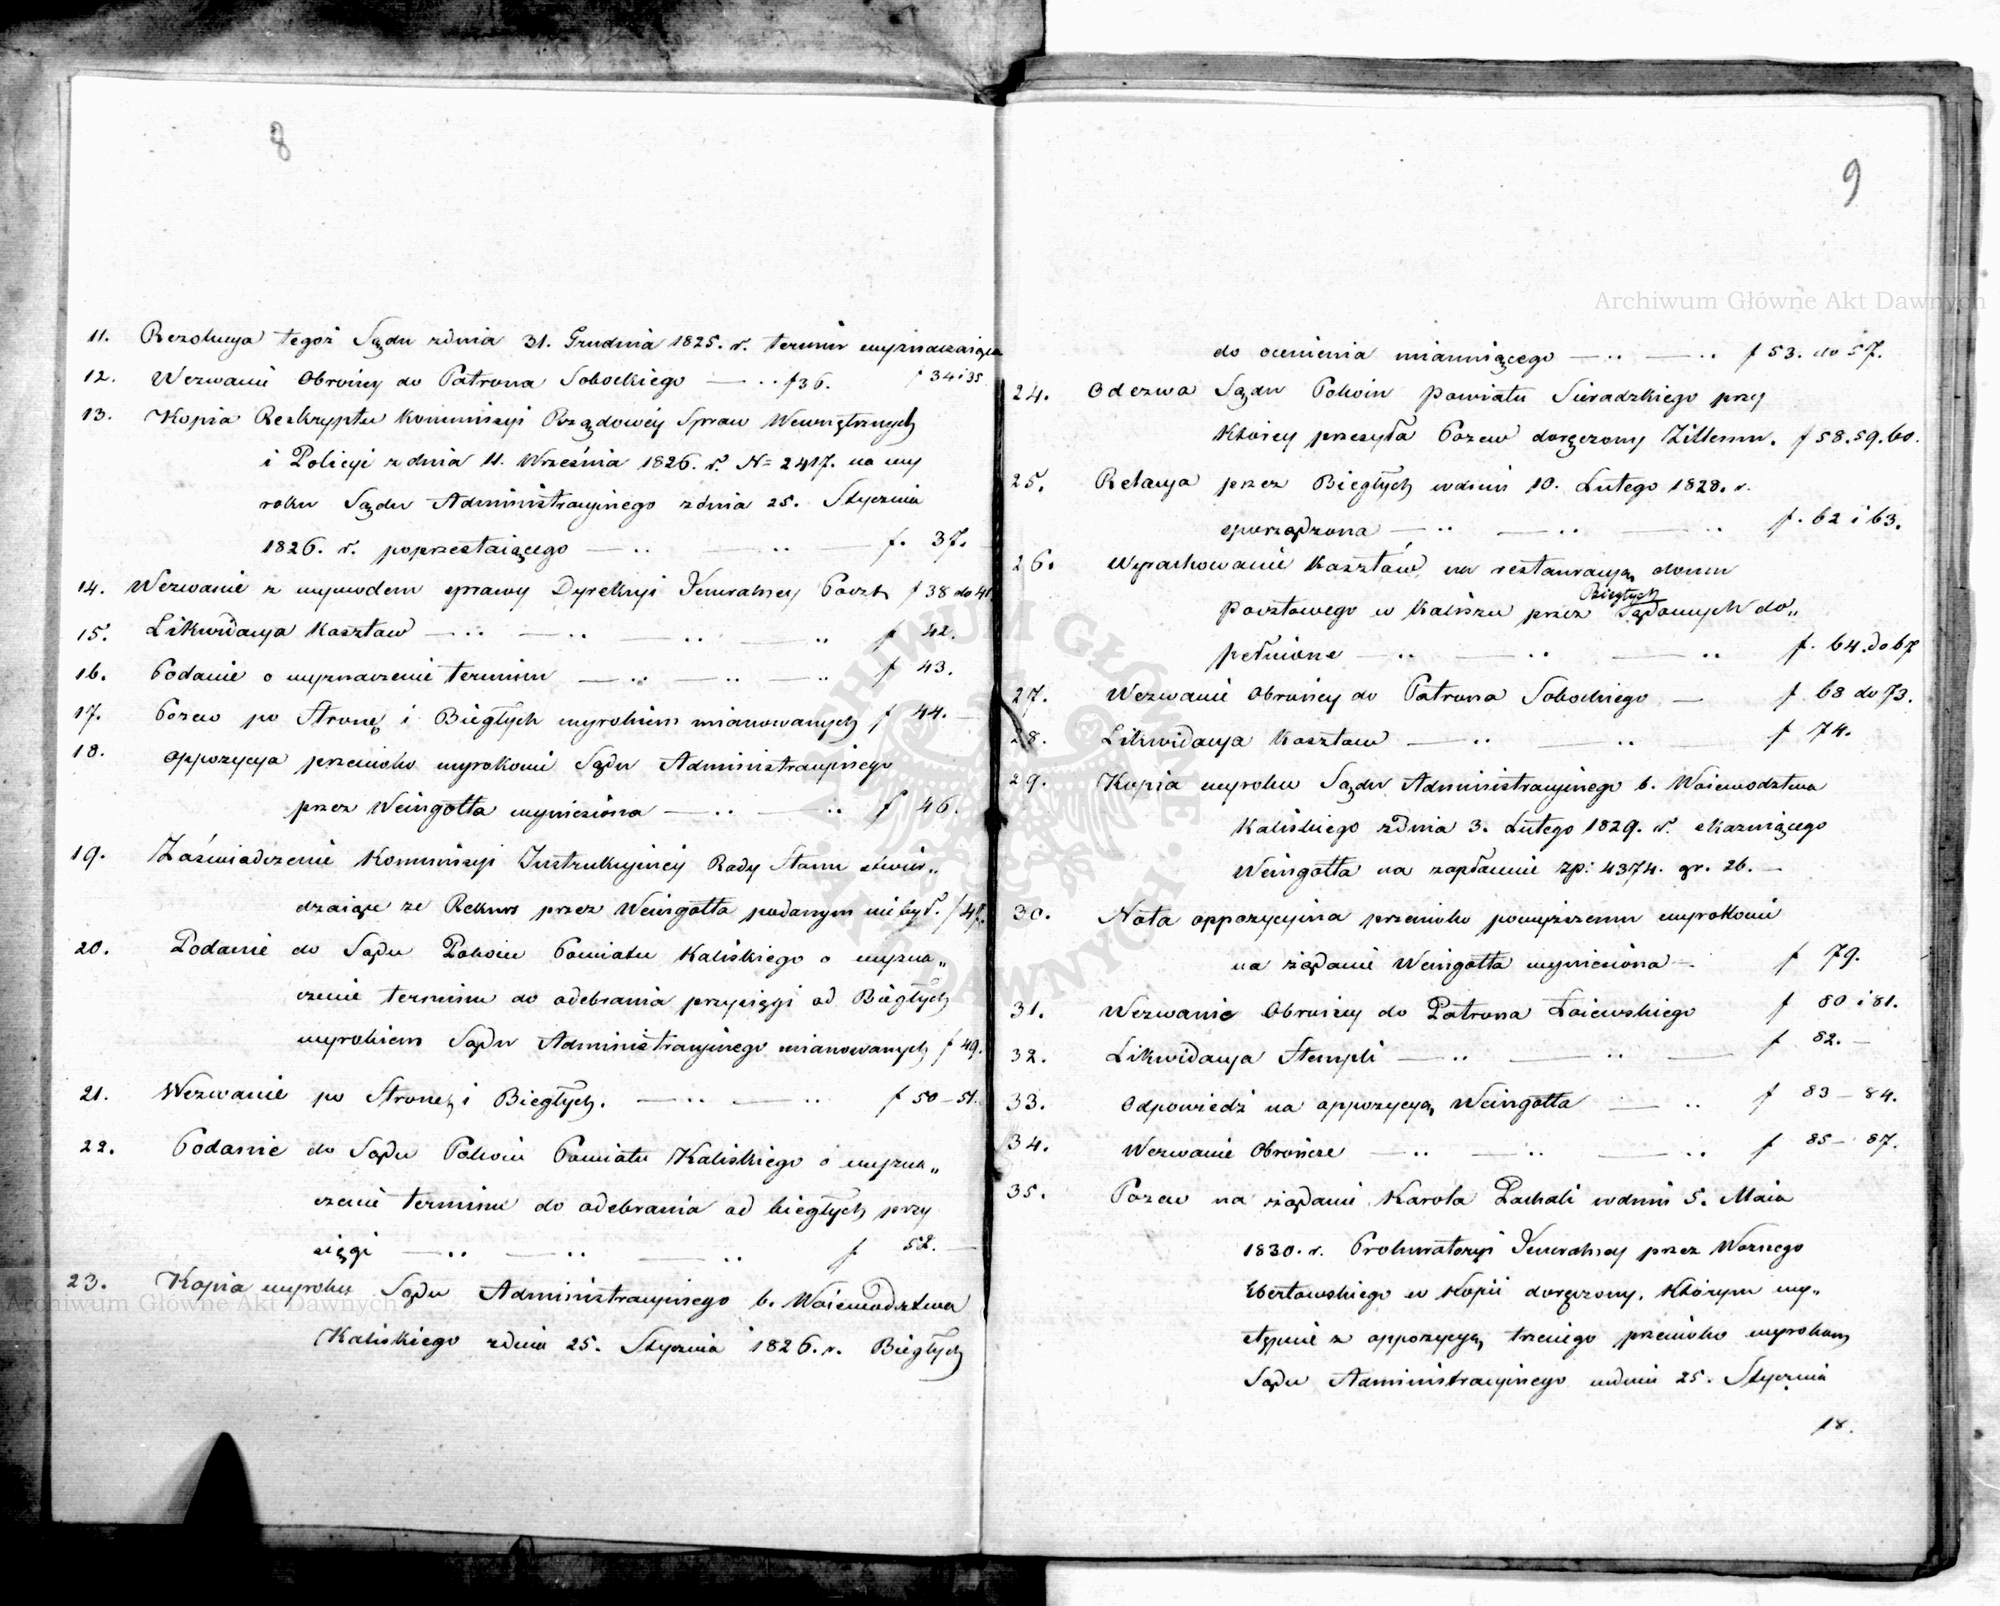 8
11. Rezolucya tegoż Sądu zdnia 31. Grudnia 1825. r. termin wyznaczaiąca f 34 i 35
12. Wezwanie Obrońcy do Patrona Sobockiego — ·· f 36.
13. Kopia Reskryptu Kommissyi Rządowéy Spraw Wewnętrznych
i Policyi z dnia 11. Września 1826. r. N= 2417. na wy
roku Sądu Administracyinego zdnia 25. Stycznia
1826. r. poprzestaiącego — ·· ·· — f. 37.
14. Wezwanie z wywodem sprawy Dyrekcyi Jeneralney Poczt f 38 do 41
15. Likwidacya Kosztow — ·· — ·· ·· ·· f 42.
16. Podanie o wyznaczenie terminu — ·· — ·· ·· f 43.
17. Pozew po Stronę i Biegłych wyrokiem mianowanych f 44. —
18. Oppozycya przeciwko wyrokowi Sądu Administracyinego
przez Weingotta wyniesiona — ·· — ·· f 46.
19. Zaświadczenie Kommissyi Instrukcyiney Rady Stanu stwier„
dzaiące ze Rekurs przez Weingotta podanym nie był. f 47.
20. Podanie do Sądu Pokoiu Powiatu Kaliskiego o wyzna„
czenie terminu do odebrania przysięgi od Biegłych
wyrokiem Sądu Administracyinego mianowanych f 49.
21. Wezwanie po Stronę i Biegłych. — ·· — ·· f 50 – 51.
22. Podanie do Sądu Pokoiu Powiatu Kaliskiego o wyzna„
czenie terminu do odebrania od biegłych przy
sięgi — ·· — ·· — ·· f 52. —
23. Kopia wyroku Sądu Administracyinego b. Woiewodztwa
Kaliskiego zdnia 25. Stycznia 1826. r. Biegłych
9
do ocenienia mianuiącego — ·· — ·· f 53. do 57.
24. Odezwa Sądu Pokoiu Powiatu Sieradzkiego przy
którey przesyła Pozew doręczony Zillemu. f 58. 59. 60.
25. Relacya przez Biegłych wdniu 10. Lutego 1828. r.
sporządzona — ·· — ·· — ·· f. 62 i 63.
26. Wyrachowanie Kosztów na restauracyą domu
Biegłych
Pocztowego w Kaliszu przez Sądowych do„
pełnione — ·· — ·· — ·· f. 64. do 67
27. Wezwanie Obrońcy do Patrona Sobockiego — f. 68 do 73.
28. Likwidacya Kosztow — ·· — ·· — f 74.
29. Kopia wyroku Sądu Administracyinego b. Woiewodztwa
Kaliskiego zdnia 3. Lutego 1829. r. skazuiącego
Weingotta na zapłacenie zp: 4374. gr. 26. —
30. Nota oppozycyina przeciwko powyższemu wyrokowi
na ząądanie Weingotta wyniesiona — f 79.
31. Wezwanie Obrońcy do Patrona Łaiewskiego f 80 i 81.
32. Likwidacya Stempli — ·· — ·· — f 82. —
33. Odpowiedź na oppozycyą Weingotta — ·· f 83 – 84.
34. Wezwanie Obrończe — ·· — ·· — ·· f 85 – 87.
35. Pozew na ządanie Karola Pachali wdniu 5. Maia
1830. r. Prokuratoryi Jeneralney przez Woznego
Ebertowskiego w Kopii doręczony, Którym wy„
stąpił z oppozycyą trzeciego przeciwko wyrokom
Sądu Administracyinego wdniu 25. Stycznia
18.
Archiwum Główne Akt Dawnych
Archiwum Główne Akt Dawnych
ARCHIWUM GŁÓWNE AKT DAWNYCH